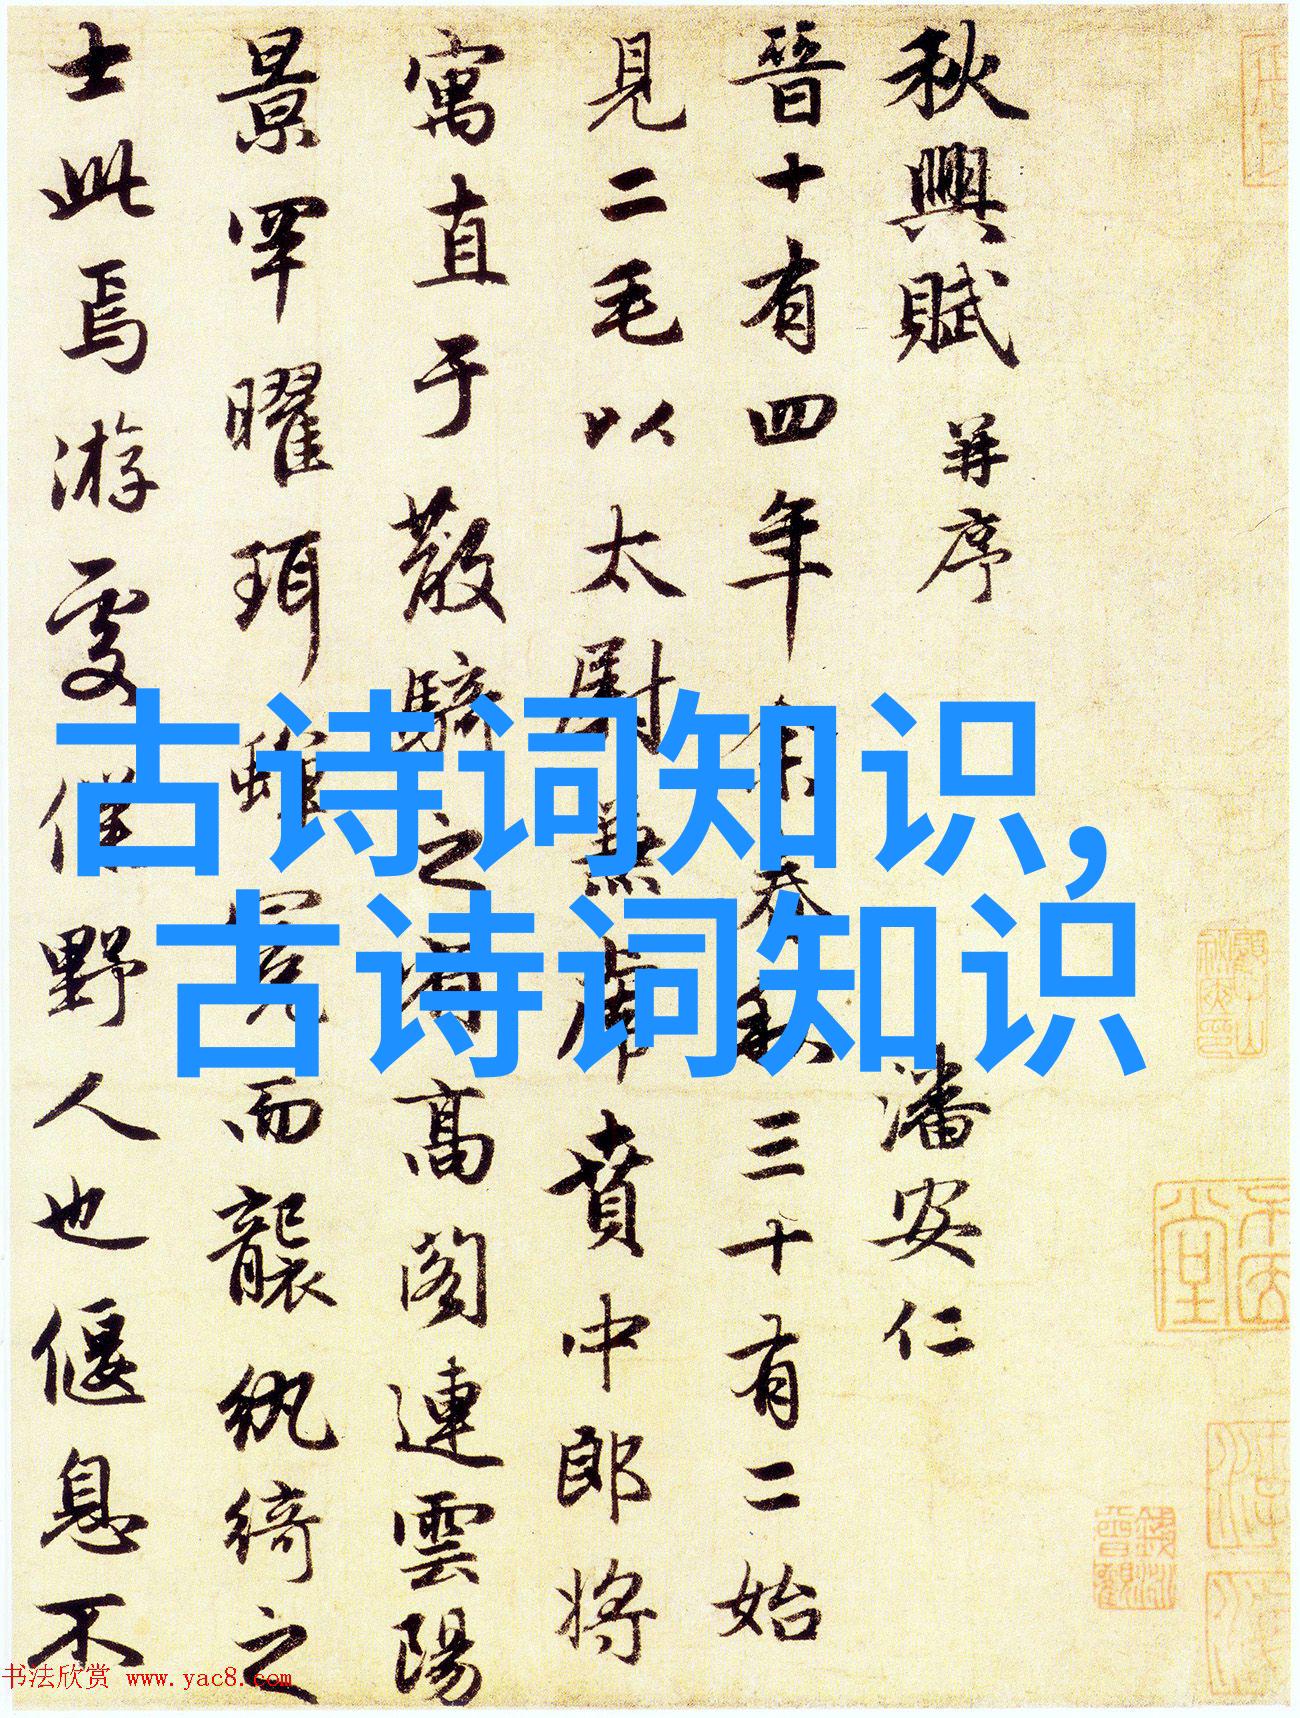 秋興賦 并序 潘安仁
晉十有四年余春秋三十有二始
見二毛以太尉兼虎賁中郎将
寓直于散騎之省高閣連雲陽
景罕曜珥蟬冕而襲紈綺之
士此焉游處僕野人也偃息不
古诗词知识,
古诗词知识
书法欣赏 www.yac8.com